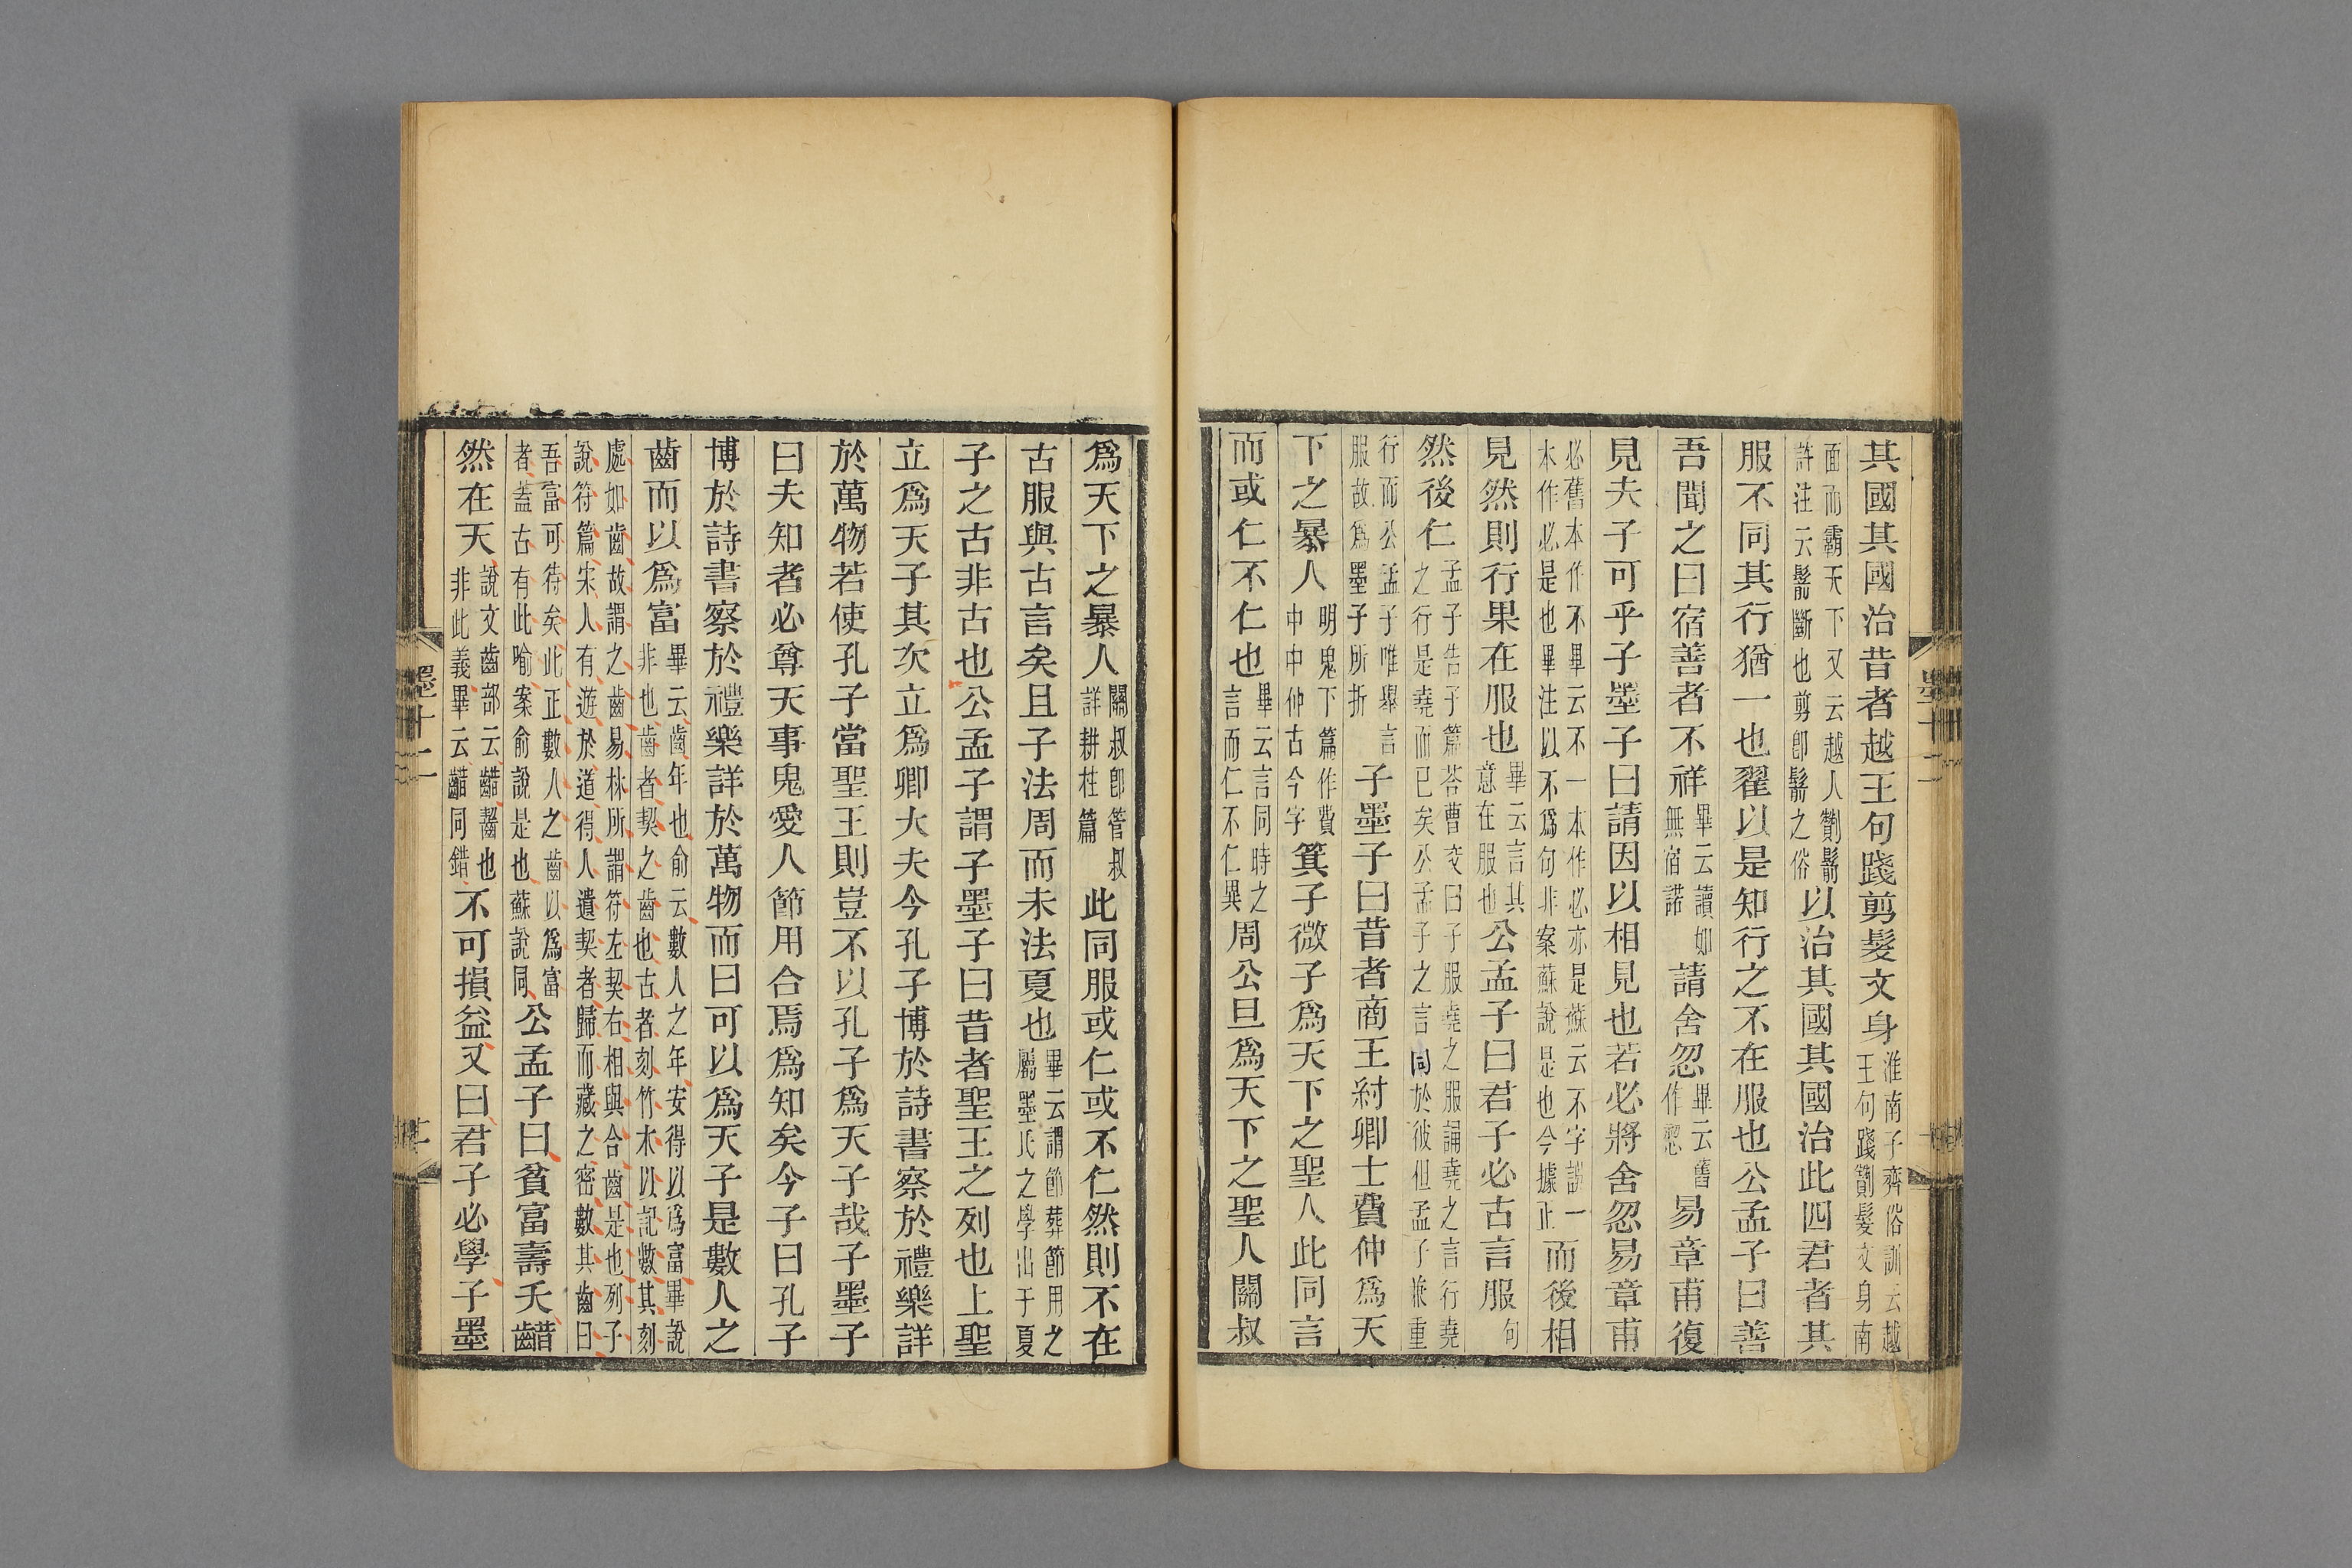 其國其國治昔者越王句踐剪髮文身淮南子齊俗訓云越王句踐劗髮文身南
面而霸天下又云越人劗鬋許注云鬋斷也剪卽鬋之俗以治其國其國治此四君者其
服不同其行猶一也翟以是知行之不在服也公孟子曰善
吾聞之曰宿善者不祥畢云讀如無宿諾請舍忽畢云舊作㥦易章甫復
見夫子可乎子墨子曰請因以相見也若必將舍忽易章甫
必舊本作不畢云不一本作必亦是蘇云不字誤一本作必是也畢注以不爲句非案蘇說是也今據正而後相
見然則行果在服也畢云言其意在服也公孟子曰君子必古言服句
然後仁孟子告子篇荅曹交曰子服堯之服誦堯之言行堯之行是堯而已矣公孟子之言同於彼但孟子兼重
行而公孟子唯舉言服故爲墨子所折子墨子曰昔者商王紂卿士費仲爲天
下之暴人明鬼下篇作費中中仲古今字箕子微子爲天下之聖人此同言
而或仁不仁也畢云言同時之言而仁不仁異周公旦爲天下之聖人關叔
爲天下之暴人關叔卽管叔詳耕柱篇此同服或仁或不仁然則不在
古服與古言矣且子法周而未法夏也畢云謂節葬節用之屬墨氏之學出于夏
子之古非古也公孟子謂子墨子曰昔者聖王之列也上聖
立爲天子其次立爲卿大夫今孔子博於詩書察於禮樂詳
於萬物若使孔子當聖王則豈不以孔子爲天子哉子墨子
曰夫知者必尊天事鬼愛人節用合焉爲知矣今子曰孔子
博於詩書察於禮樂詳於萬物而曰可以爲天子是數人之
齒而以爲富畢云齒年也俞云數人之年安得以爲富畢說非也齒者契之齒也古者刻竹木以記數其刻
處如齒故謂之齒易林所謂符左契右相與合齒是也列子說符篇宋人有遊於道得人遺契者歸而藏之密數其齒曰
吾富可待矣此正數人之齒以爲富者蓋古有此喻案俞說是也蘇說同公孟子曰貧富壽夭齰
然在天說文齒部云齰齧也非此義畢云齰同錯不可損益又曰君子必學子墨
墨十二
墨十二